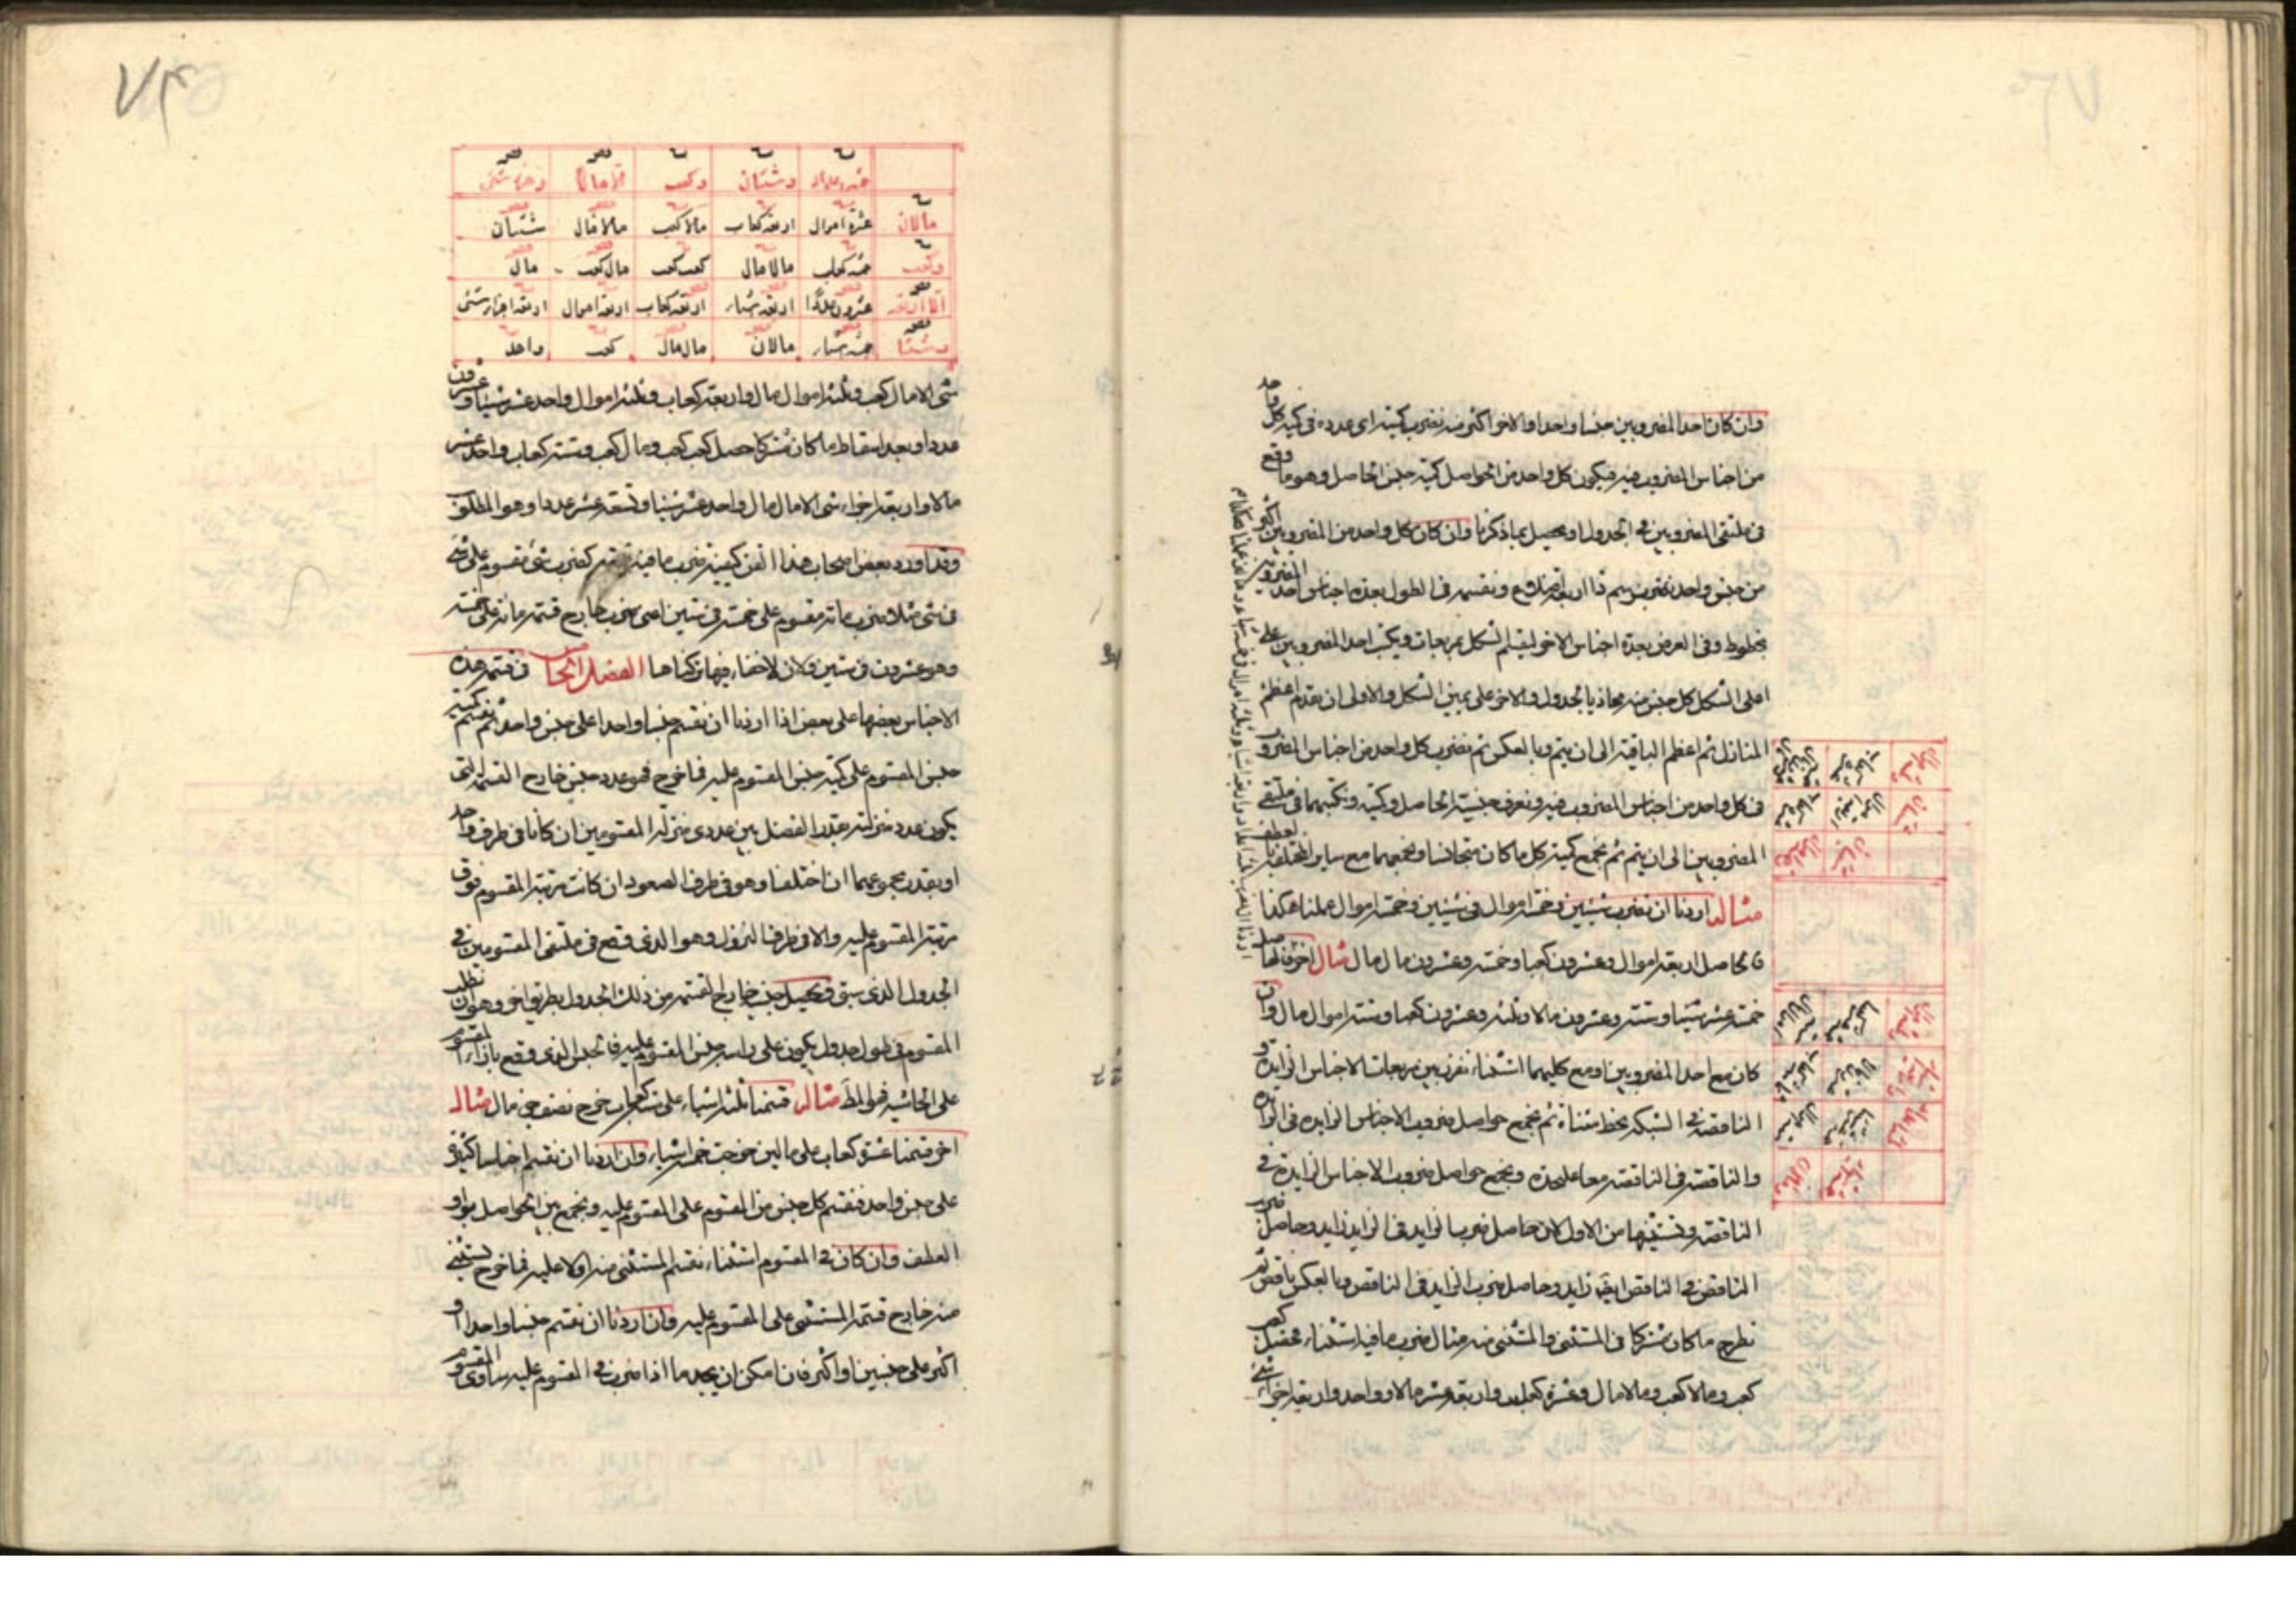 وان كان احد المضروبين جنسا واحدا والاخر اكثر منه نضرب كميته اى عدده فى كمية كل واحد
من اجناس المضروب فيه فيكون كل واحد من الحواصل كمية جنس الحاصل وهو ما وقع
فى ملتقى المضروبين فى الجدول او يحصل بما ذكرنا وان كان كل واحد من المضروبين اكثر
من جنس واحد نرسم ذا اربعة اضلاع ونقسمه فى الطول بعدة اجناس احد المضروبين
بخطوط وفى العرض بعدة اجناس الاخر لينقسم الشكل بمربعات ويكتب احد المضروبين على
اعلى الشكل كل جنس منه محاذيا لجدول والاخر على يمين الشكل والاولى ان يقدم اعظم
المنازل ثم اعظم الباقية الى ان يتم وبالعكس ثم نضرب كل واحد من اجناس المضروب
فى كل واحد من اجناس المضروب فيه ونعرف جنسية الحاصل وكميته ونكتبهما فى ملتقى
المضروبين الى ان يتم ثم نجمع كمية كل ما كان متجانسا ونجمعهما مع ساير المختلفة بالعطف
مثاله اردنا ان نضرب شيئين وخمسة اموال فى شيئين وخمسة اموال عملنا هكذا
فالحاصل اربعة اموال وعشرون كعبا وخمسة وعشرون مال مال مثال اخر
خمسة عشر شيئا وستة وعشرون مالا وثلثة وعشرون كعبا وستة اموال مال وان
كان مع احد المضروبين او مع كليهما استثناء نفرز بين مربعات الاجناس الزايدة و
الناقصة فى الشبكة بخط مثناة ثم نجمع حواصل ضروب الاجناس الزايدة فى الزايدة
والناقصة فى الناقصة معا عليحدة ونجمع حواصل ضروب الاجناس الزايدة فى
الناقصة ونستثنيها من الاول لان حاصل ضرب الزايد فى الزايد زايد وحاصل ضرب
الناقص فى الناقص ايضا زايد وحاصل ضرب الزايد فى الناقص وبالعكس ناقص ثم
نطرح ما كان مشتركا فى المستثنى والمستثنى منه مثال ضرب ما فيه استثناء فحصل كعب
كعب ومالا كعب ومالا مال وعشرة كعاب واربعة عشر مالا وواحد واربعة اجزاء
خمسة اعداد وشيئان وكعب الا مالا وجزء شئ
مالان عشرة اموال اربعة كعاب مالا كعب مالا مال شيئان
وكعب خمسة كعاب مالا مال كعب كعب مال كعب مال
الا اربعة عشرون عددا اربعة اشياء اربعة كعاب اربعة اموال اربعة اجزاء شئ
وشيئا خمسة اشياء مالان مال مال كعب واحد
شئ الا مال كعب وثلثة اموال مال واربعة كعاب وثلثة اموال واحد عشر شيئا وعشرون
عددا وبعد اسقاط ما كان مشتركا حصل كعب كعب ومال كعب وستة كعاب واحد عشر
مالا واربعة اجزاء شئ الا مال مال واحد عشر شيئا وتسعة عشر عددا وهو المطلوب
وقد اورد بعض اصحاب هذا الفن كيفية ضرب ما فيه قسمة كضرب شئ مقسوم على شئ
فى شئ مثلا ضرب مائة مقسوم على خمسة فى ستين اعنى ضرب خارج قسمة مائة على خمسة
وهو عشرون فى ستين ولان لاخفاء فيها تركناها الفصل الخامس فى قسمة هذه
الاجناس بعضها على بعض اذا اردنا ان نقسم جنسا واحدا على جنس واحد نقسم كمية
جنس المقسوم على كمية جنس المقسوم عليه فما خرج فهو عدد جنس خارج القسمة التى
يكون عدد منزلته بقدر الفضل بين عددى منزلة المقسومين ان كانا فى طرف واحد
او بقدر مجموعهما ان اختلفا وهو فى طرف الصعود ان كانت مرتبة المقسوم فوق
مرتبة المقسوم عليه والا فى طرف النزول وهو الذى وقع فى ملتقى المقسومين فى
الجدول الذى سبق وتحصيل جنس خارج القسمة من ذلك الجدول بطريق اخر وهو ان نطلب
المقسوم فى طول جدول يكون على راسه جنس المقسوم عليه فالجنس الذى وقع بازاء المقسوم
على الحاشية فهو المط مثاله قسمنا ثلثة اشياء على ستة كعاب خرج نصف جزء مال مثال
اخر قسمنا عشرة كعاب على مالين خرجت خمسة اشياء وان اردنا ان نقسم اجناسا كثيرة
على جنس واحد فنقسم كل جنس من المقسوم على المقسوم عليه ونجمع بين الحواصل بواو
العطف وان كان فى المقسوم استثناء نقسم المستثنى منه اولا عليه فما خرج نستثنى
منه خارج قسمة المستثنى على المقسوم عليه وان اردنا ان نقسم جنسا واحدا او
اكثر على جنسين او اكثر فان امكن ان يجد ما اذا ضرب فى المقسوم عليه ساوى المقسوم